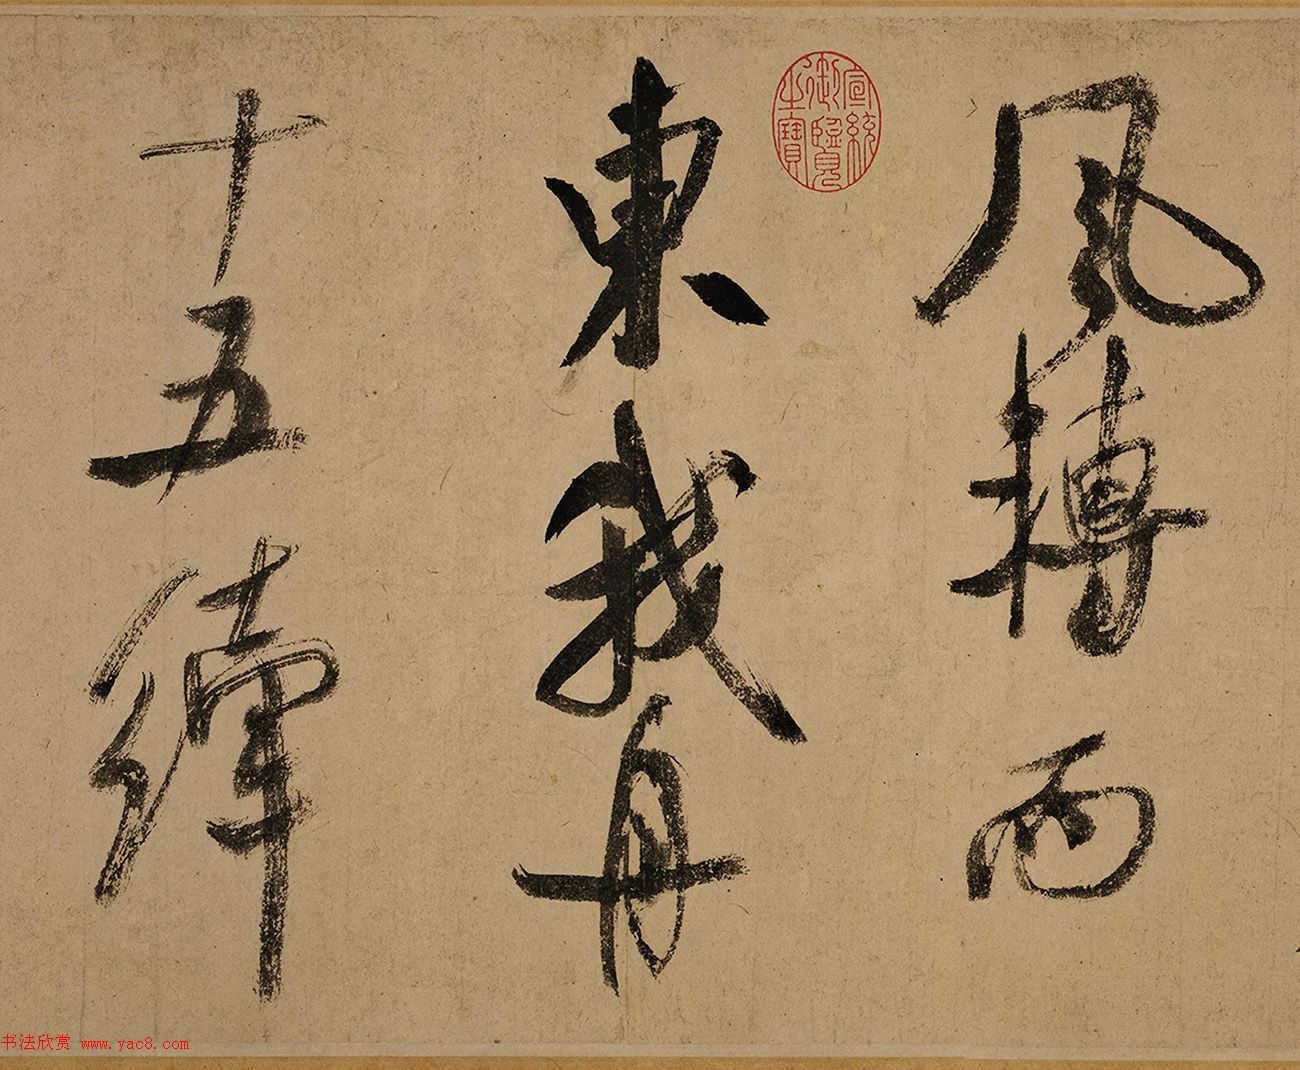 風轉而
東我舟
十五縴
宣統
御覽
之寶
书法欣赏 www.yac8.com